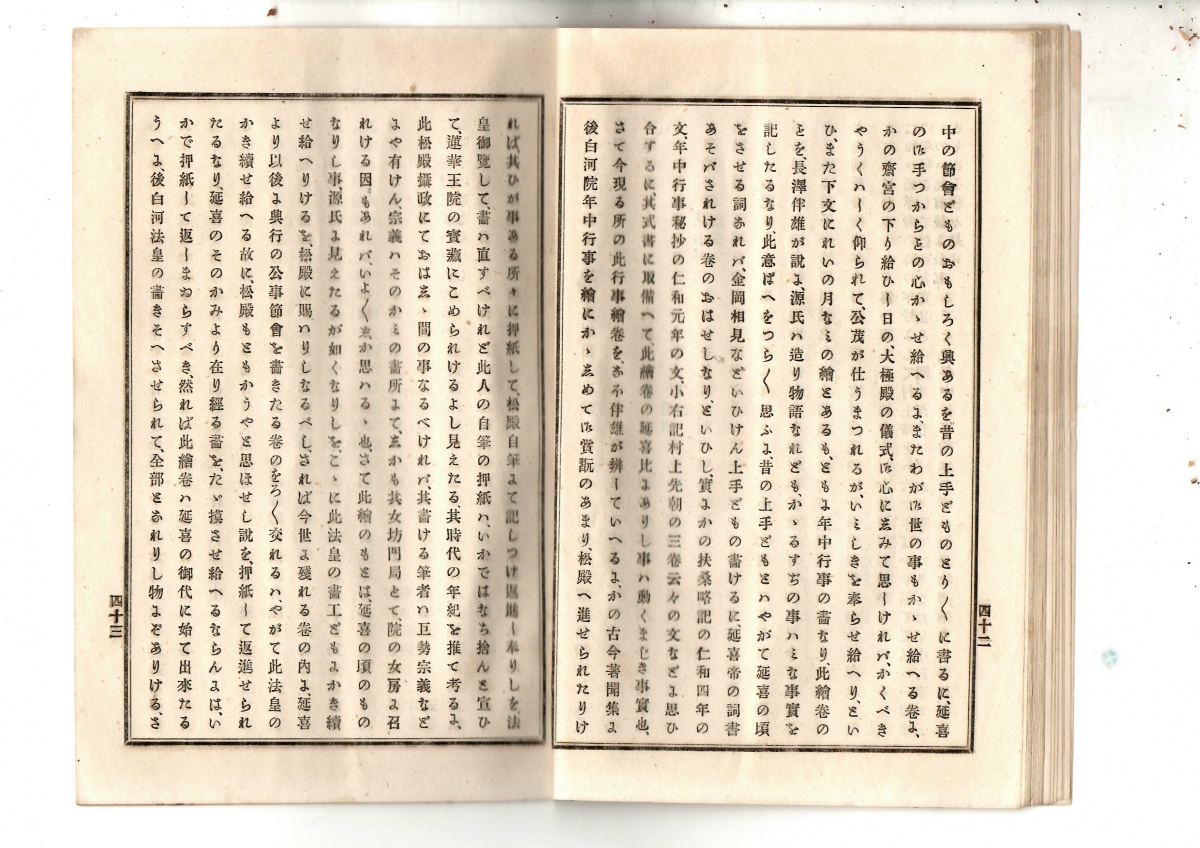 中の節會どものおもしろく興あるを昔の上手どものとり〳〵に書るに、延喜
の御手つからをの心かゝせ給へるよ、またわが御世の事もかゝせ給へる卷よ、
かの齋宮の下り給ひし日の大極殿の儀式、御心にゑみて思しけれバ、かくべき
やうくハしく仰られて、公茂が仕うまつれるが、いミしきを奉らせ給へり、とい
ひまた下文にれいの月なミの繪とあるも、ともよ年中行事の畵なり、此繪卷の
とを、長澤伴雄が說よ、源氏ハ造り物語なれども、かゝるすぢの事ハミな事實を
記したるなり、此意ばへをつら〳〵思ふよ、昔の上手どもとハやがて延喜の頃
をさせる詞なれバ、金岡相見などいひけん上手どもの畵けるに、延喜帝の詞書
あそバされける卷のおはせしなり、といひし、實よかの扶桑略記の仁和四年の
文、年中行事秘抄の仁和元年の文、小右記村上先朝の三卷云々の文などよ思ひ
合するに、其式書に取備へて此繪卷の延喜比よありし事ハ動くまじき事實也、
さて今現る所の此行事繪卷を、なほ伴雄が辨していへるよ、かの古今著聞集よ
後白河院年中行事を繪にかゝゑめて御賞翫のあまり、松殿へ進せられたりけ
四十二
れば、其ひが事ある所々に押紙して、松殿自筆よて記しつけ返進し奉りしを、法
皇御覽して、畵ハ直すべけれど此人の自筆の押紙ハ、いかではなち捨んと宣ひ
て、蓮華王院の寶藏にこめられけるよし見えたる其時代の年紀を推て考るよ、
此松殿攝政にておはゑゝ間の事なるべけれバ、其畵ける筆者ハ巨勢宗義など
よや有けん、宗義ハそのかミの畵所よて、ゑかも其女坊門局とて、院の女房よ召
れける因もあれバ、いよ〳〵ゑか思ハるゝ也、さて此繪のもとは、延喜の頃のもの
なりし事、源氏よ見えたるが如くなりしを、こゝに此法皇の畵工どもよかき續
せ給へりけるを、松殿に賜ハりしなるべし、されば今世よ殘れる卷の內よ、延喜
より以後よ興行の公事節會を畵きたる卷のをろ〳〵交れるハ、やがて此法皇の
かき續せ給へる故に、松殿もともかうやと思ほせし說を、押紙して返進せられ
たるなり、延喜のそのかみより在り經る畵を、たゞ摸させ給へるならんよは、い
かで押紙して返しまゐらすべき、然れば此繪卷ハ延喜の御代に始て出來たる
うへよ後白河法皇の畵きそへさせられて、全部となれりし物よぞありける、さ
四十三